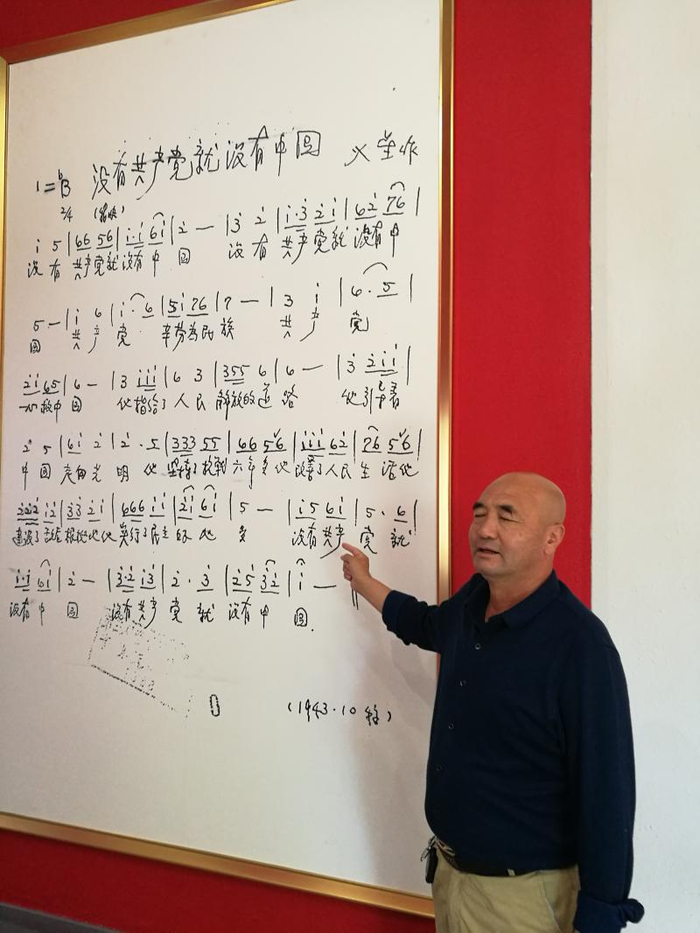 没有共产党就没有中国
1=ᵇB
2/4
i 5 | 66 56 | i·i 6i | 2 — | 3 2 | i·3 2i | 62 76 |
没有共产党就没有中国 没有共产党就没有中
5 — | i 6 | i·6 | 5i 76 | 7 — | 3 i | 6·5 |
国 共产党 辛劳为民族 共产党
2i 65 | 6 — | 3 iii | 6 3 | 355 6 | 6 — | 3 2ii |
一心救中国 他指给了人民解放的道路 他引导着
2 5 | 6i 2 | 2·5 | 333 55 | 66 56 | iii 62 | 76 56 |
中国走向光明 他坚持了抗战六年多他改善了人民生活他
2222 i2 | 33 2i | 666 ii | 2i 6i | 5 — | i5 6i | 5·6 |
建设了敌后根据地他实行了民主好处多 没有共产党就
i·i 6i | 2 — | 3·2 i3 | 2·3 | 25 32 | i — ‖
没有中国 没有共产党就没有中国.
(1943·10